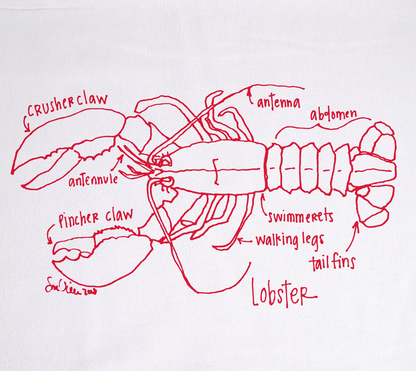 CRUSHER CLAW
antenna
abdomen
antennule
PINCHER CLAW
swimmerets
walking legs
tail fins
LOBSTER